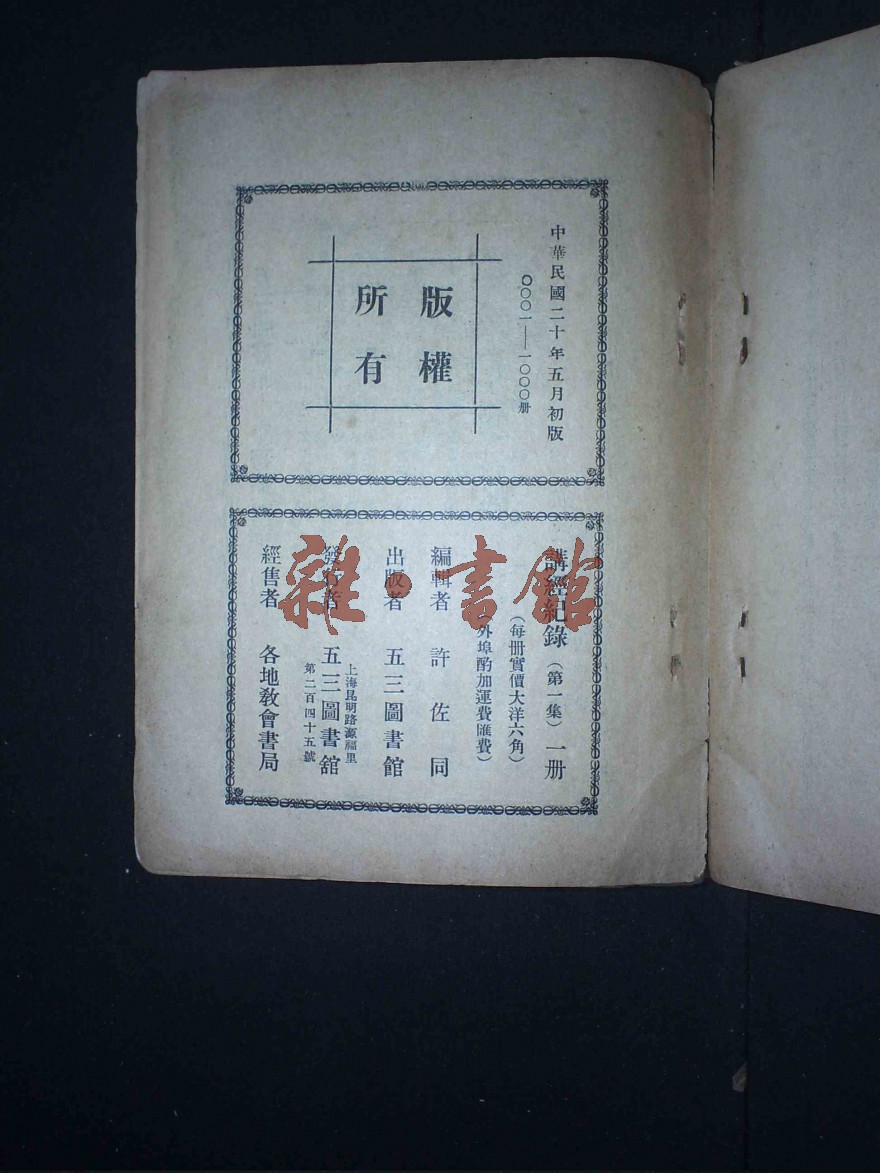 中華民國二十年五月初版
〇〇〇一——一〇〇〇册
版權
所有
講經紀錄(第一集)一册
(每册實價大洋六角)
外埠酌加運費匯費)
編輯者 許佐同
出版者 五三圖書館
上海昆明路源福里
發行者 五三圖書舘
第二百四十五號
經售者 各地敎會書局
雜·書館